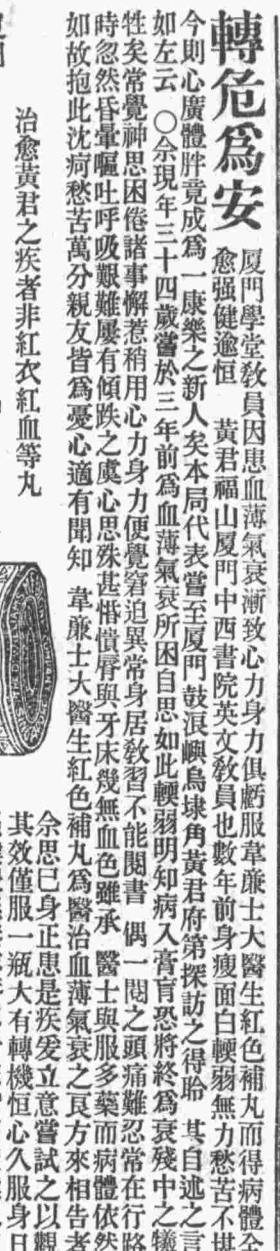 轉危爲安
廈門學堂敎員因患血薄氣衰漸致心力身力俱虧服韋廉士大醫生紅色補丸而得病體全
愈强健逾恒　黃君福山廈門中西書院英文敎員也數年前身瘦面白輭弱無力愁苦不堪
今則心廣體胖竟成爲一康樂之新人矣本局代表嘗至廈門鼓浪嶼烏埭角黃君府第探訪之得聆　其自述之言
如左云　〇余現年三十四歲嘗於三年前爲血薄氣衰所困自思如此輭弱明知病入膏肓恐將終爲衰殘中之犧
牲矣常覺神思困倦諸事懈惹稍用心力身力便覺窘迫異常身居敎習不能閱書　偶一閱之頭痛難忍常在行路
時忽然昏暈嘔吐呼吸艱難屢有傾跌之虞心思殊甚惛憒脣與牙床幾無血色雖承　醫士與服多藥而病體依然
如故抱此沈疴愁苦萬分親友皆爲憂心適有聞知　韋廉士大醫生紅色補丸爲醫治血薄氣衰之良方來相告者
治愈黃君之疾者非紅衣紅血等丸
余思已身正患是疾爰立意嘗試之以觀
其效僅服一瓶大有轉機恒心久服身日